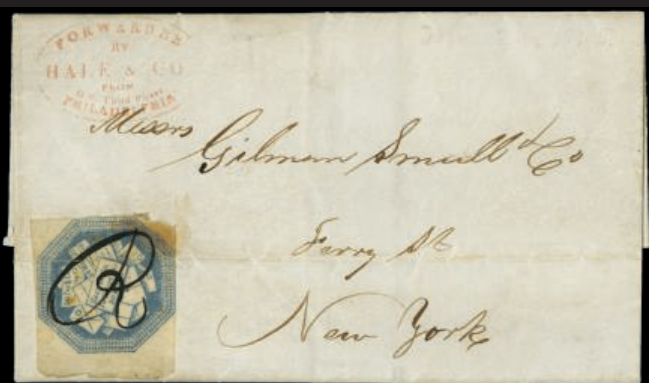 FORWARDED
BY
HALE & CO
FROM
PHILADELPHIA
Messrs
Gilman Small & Co
Ferry St
New York
R